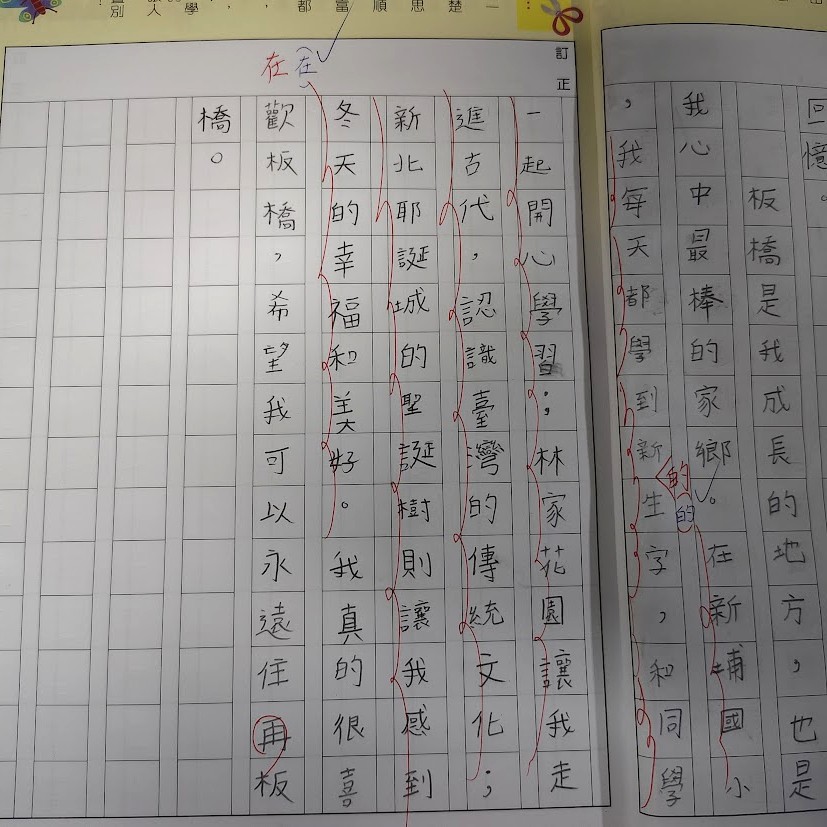 回憶。
板橋是我成長的地方，也是
我心中最棒的家鄉。在新埔國小
，我每天都學到新生字，和同學
的
的
訂正
一起開心學習；林家花園讓我走
進古代，認識臺灣的傳統文化；
新北耶誕城的聖誕樹則讓我感到
冬天的幸福和美好。我真的很喜
歡板橋，希望我可以永遠住再板
橋。
在
(在)